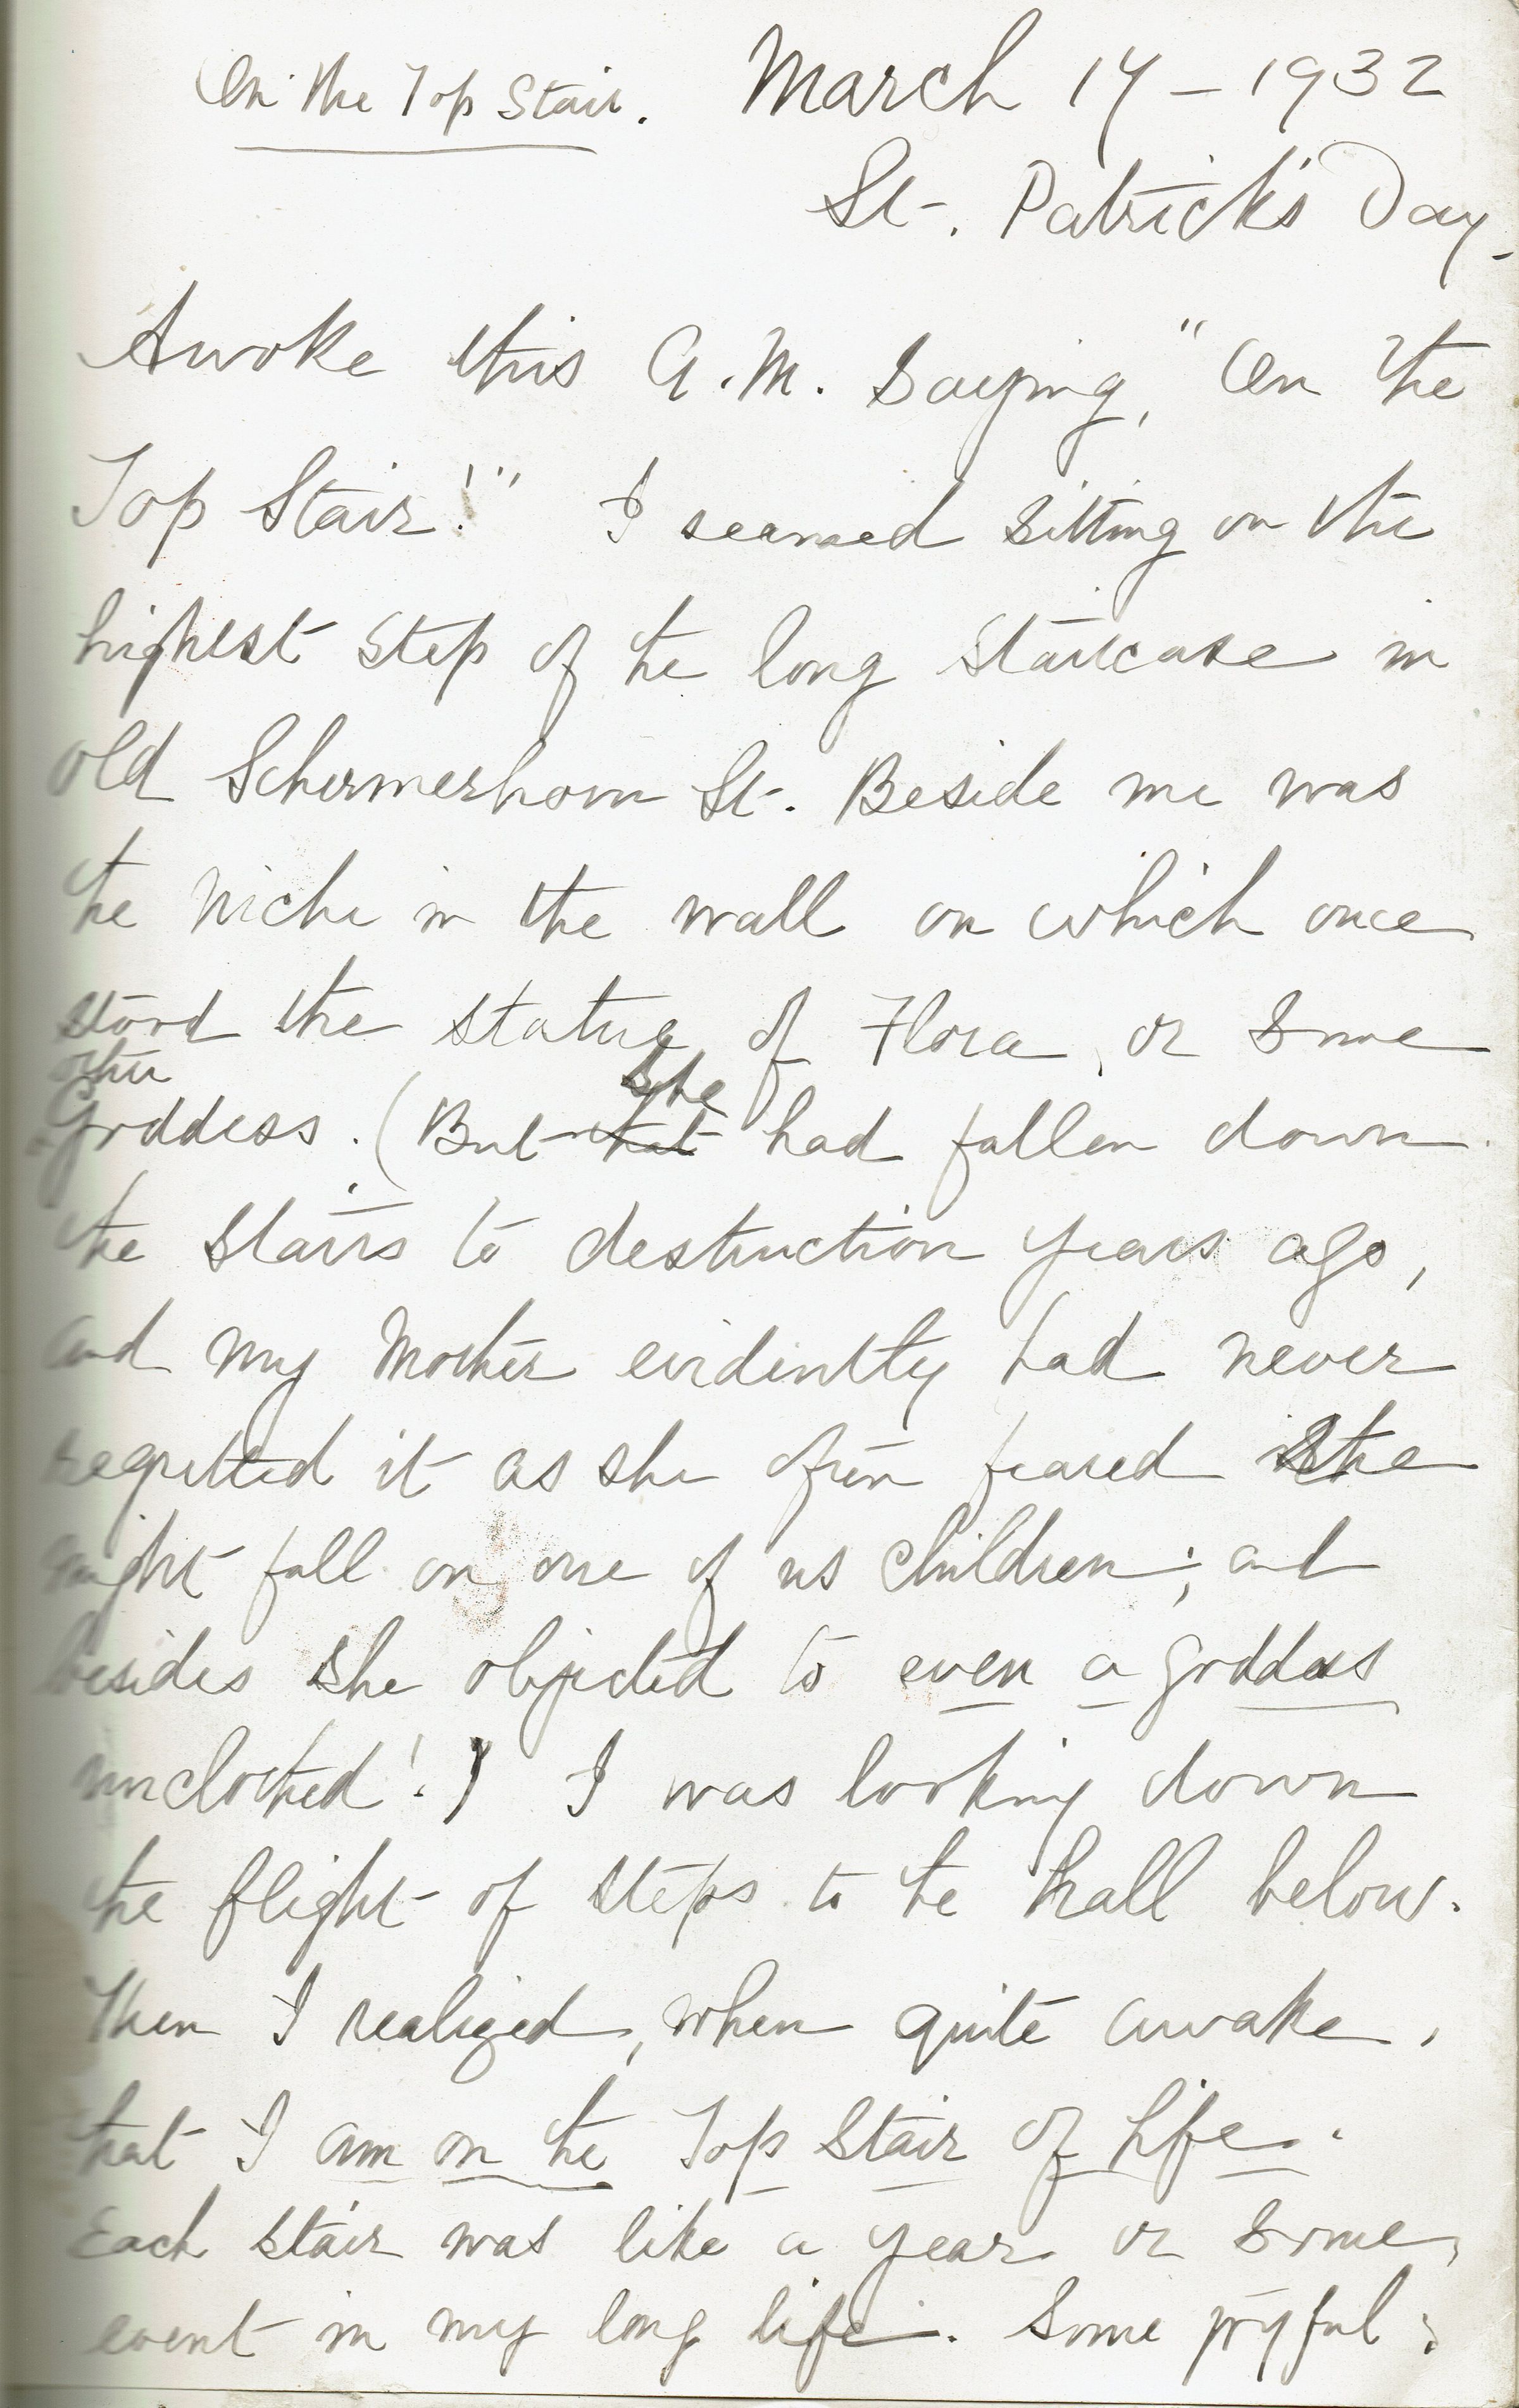 On the Top Stair. March 17 - 1932
St. Patrick's Day.
Awoke this A.M. saying, "On the
Top Stair!" I seemed sitting on the
highest step of the long staircase in
old Schermerhorn St. Beside me was
the niche in the wall on which once
stood the statue of Flora, or some
other she
Goddess. (But that had fallen down
the stairs to destruction years ago,
and my Mother evidently had never
regretted it as she often feared she
might fall on one of us children; and
besides she objected to even a goddess
unclothed!) I was looking down
the flight of steps to the hall below.
Then I realized, when quite awake,
that I am on the Top Stair of life.
Each stair was like a year or some
event in my long life. Some joyful;